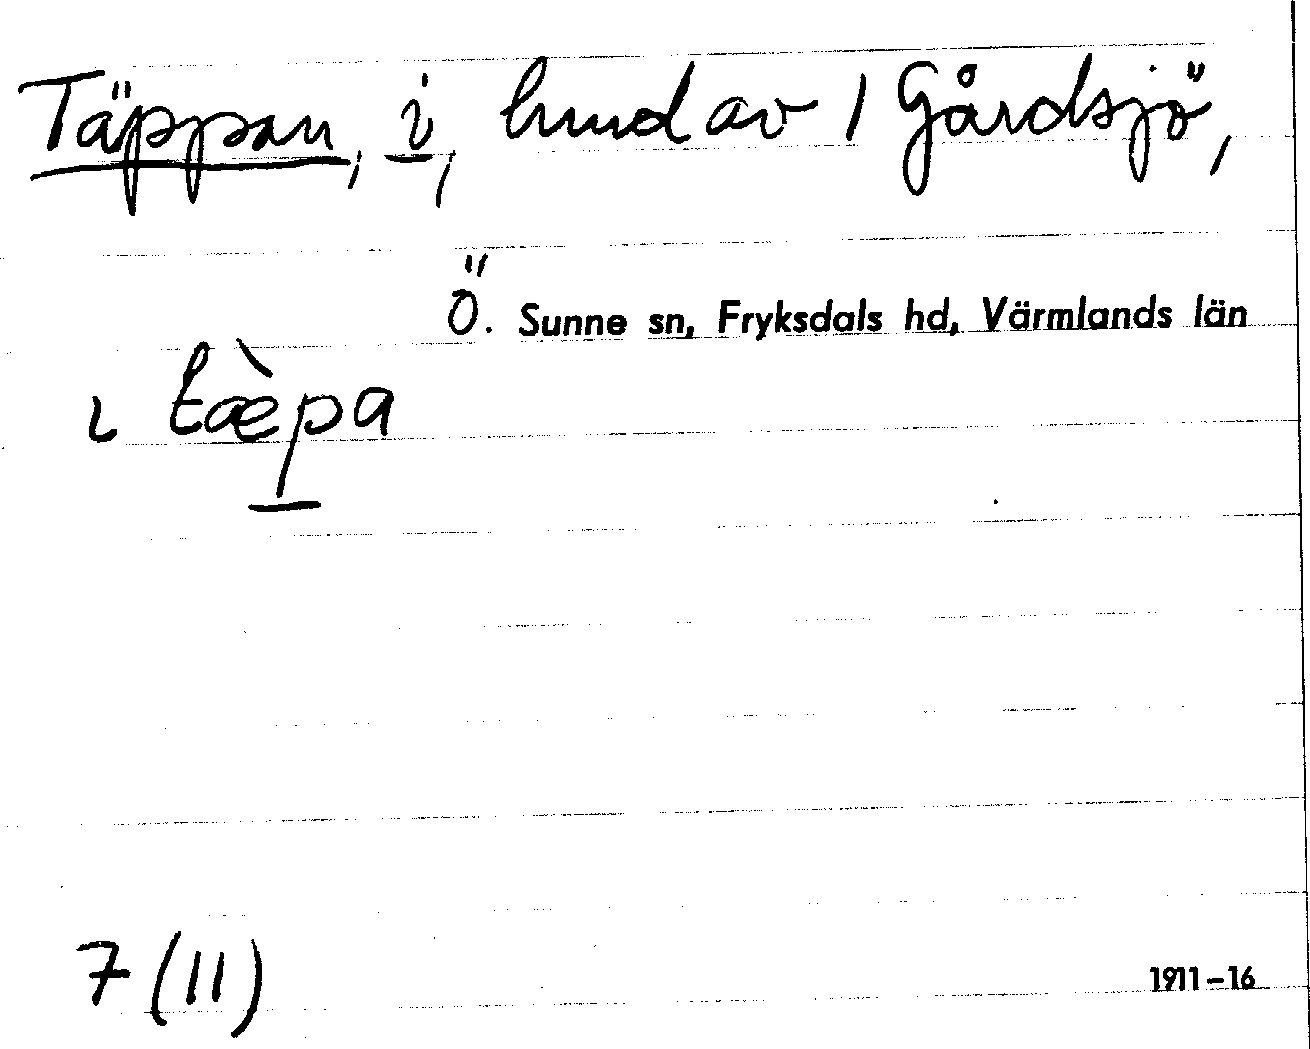 Täppan, i, hmd av 1 Gårdsjö,
Ö. Sunne sn, Fryksdals hd, Värmlands län
ɩ tæ̀pa
7 (11)
1911-16